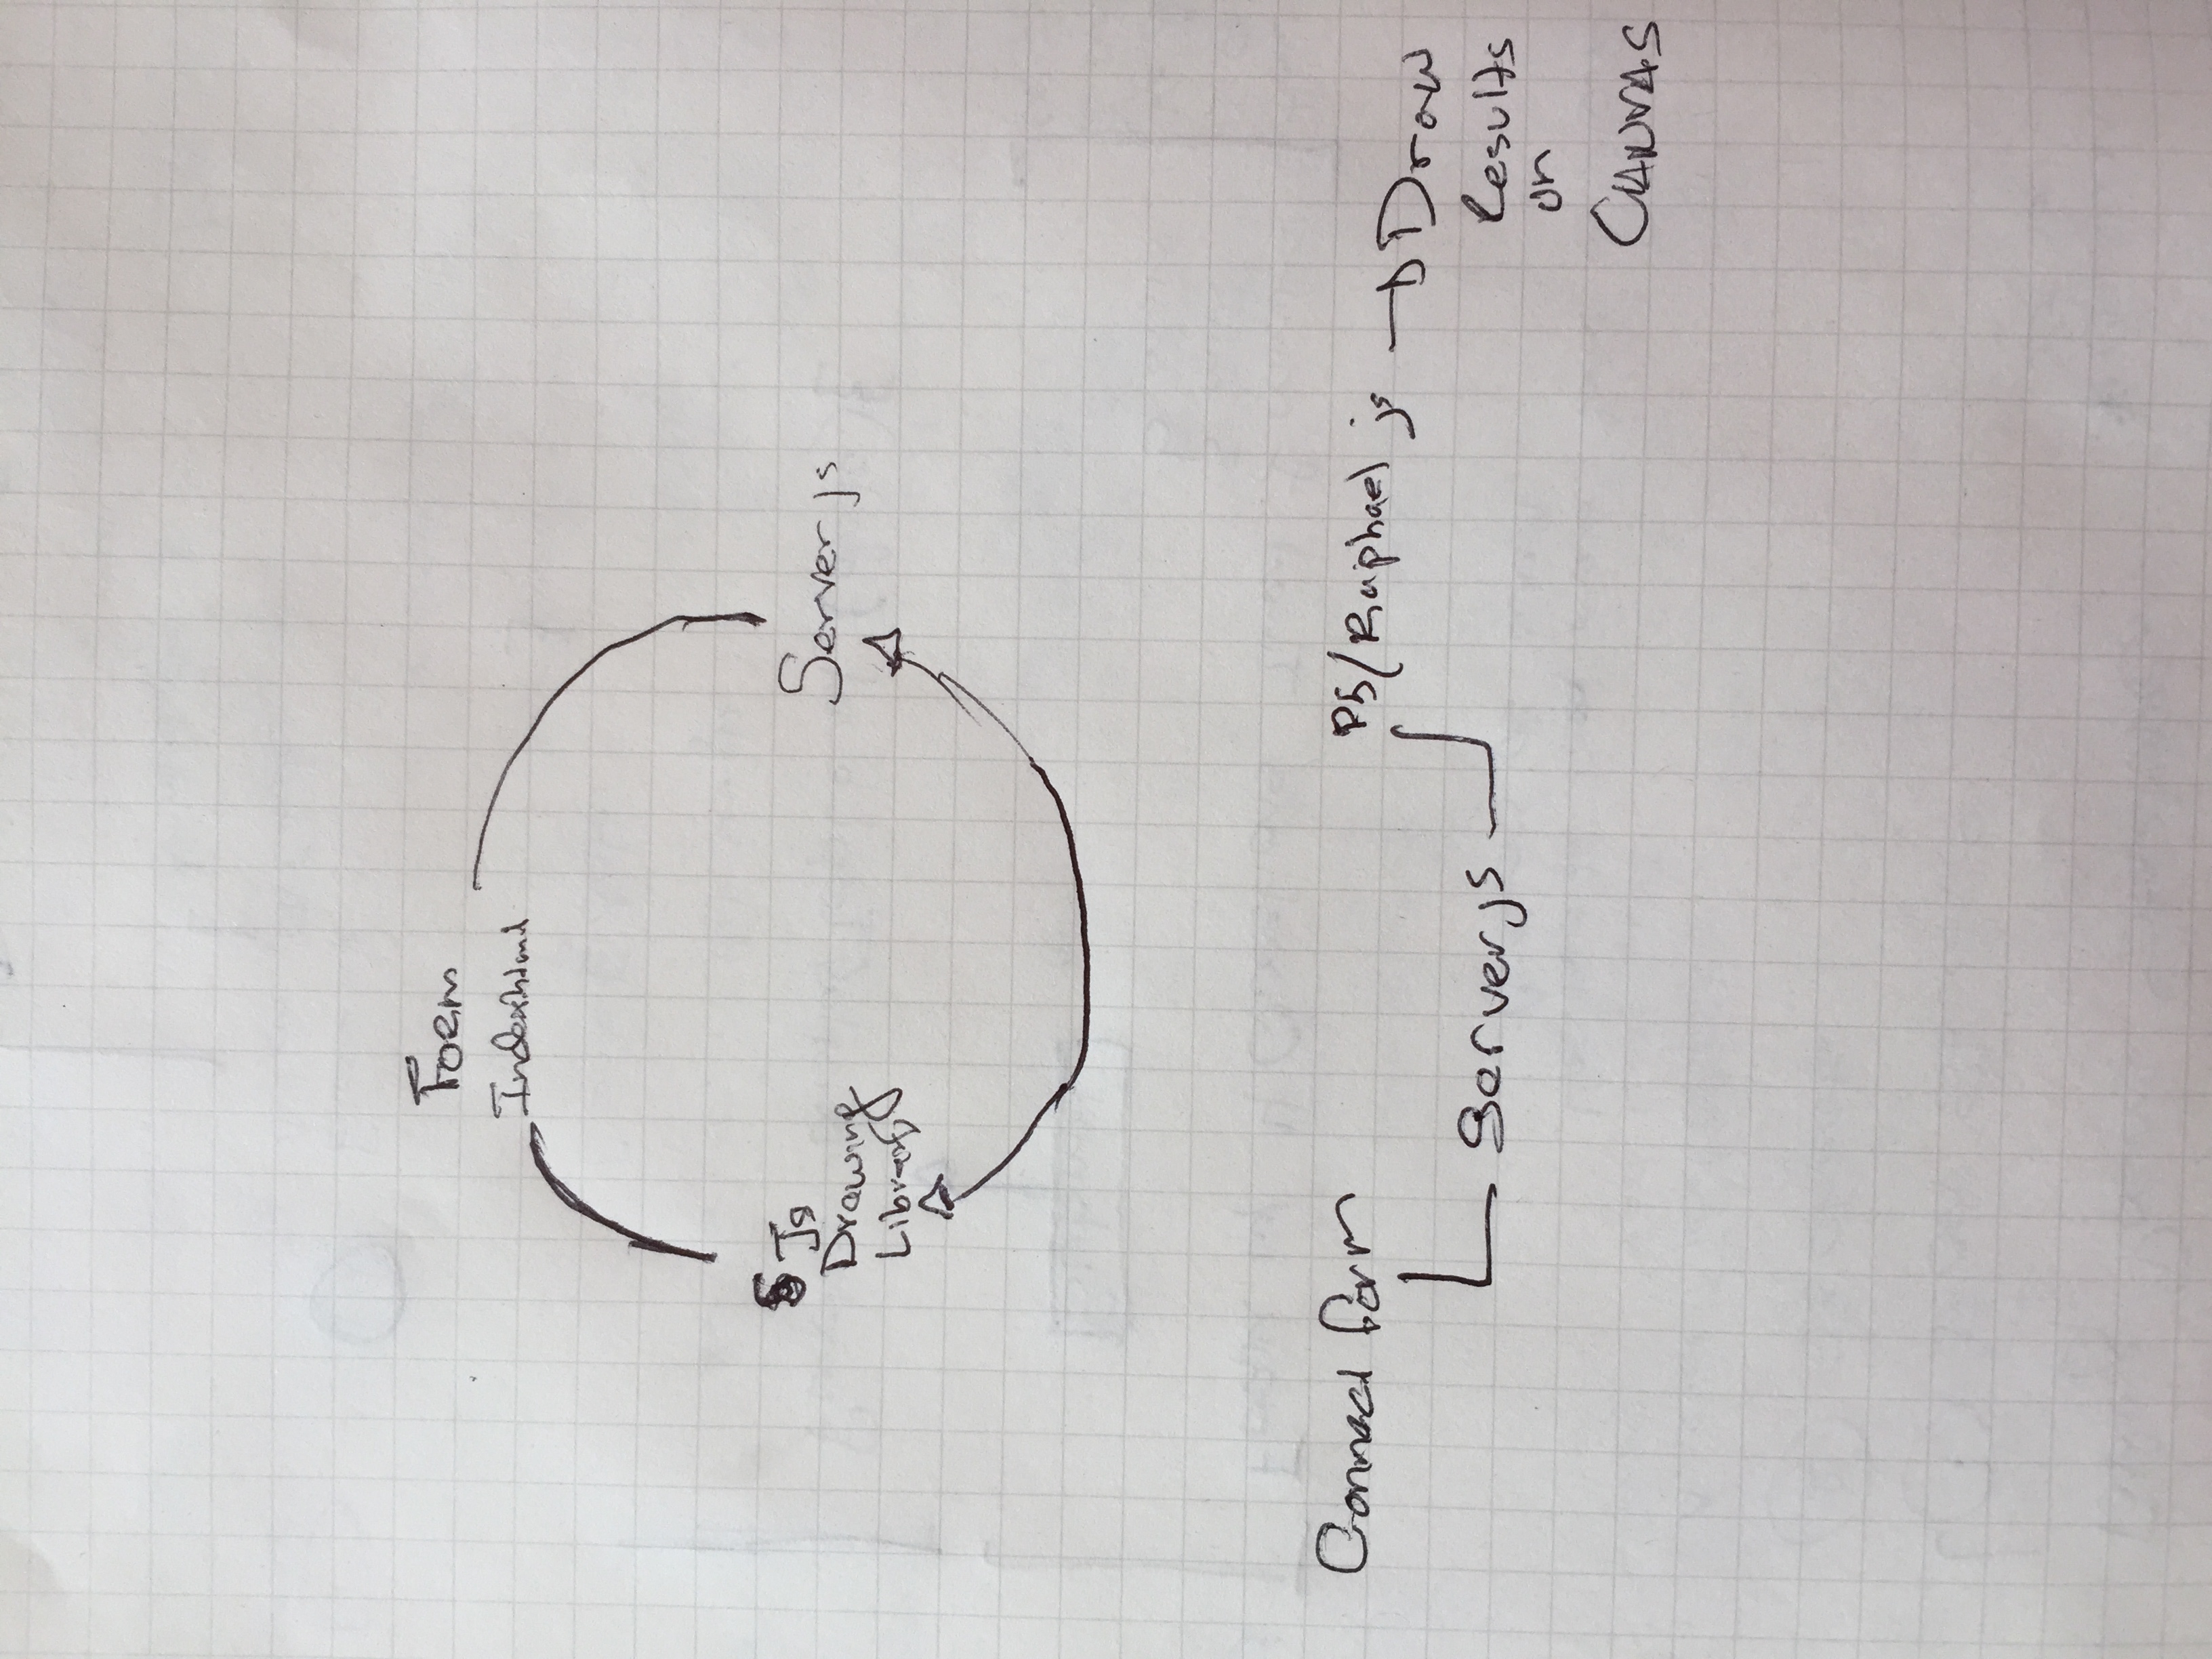 Form
Index.html
Server js
Js
Drawing
Library
Command form
Server js
P5/Raphael js
Draw
Results
on
CANVAS